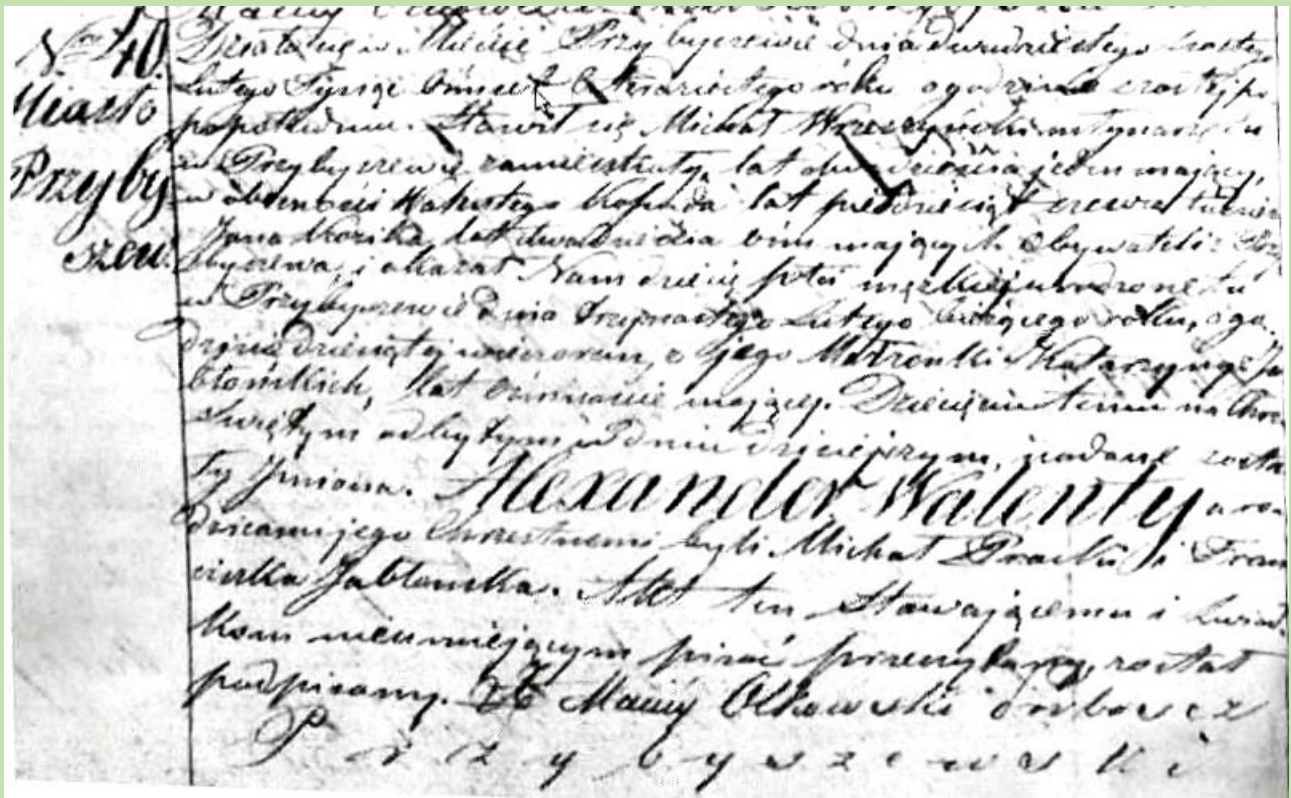 Nro 40.
Miasto
Przyby
szew.
Działo się w Mieście Przybyszewie dnia dwudziestego szóstego
Lutego Tysiąc ośmset roku o godzinie szóstej po
popołudniu. Stawił się Michał młynarz tu
w Przybyszewie zamieszkały, lat dwadzieścia jeden mający,
w obecności lat pięćdziesiąt szewca tudzież
Jana lat dwadzieścia ośm mających Obywateli z Przy
byszewa, i okazał Nam dziecię płci męzkiej urodzone tu
w Przybyszewie dnia trzynastego Lutego bieżącego roku, o go
dzinie dziesiątej wieczorem, z jego Małżonki Katarzyny z Ja
błońskich, lat ośmnaście mającej. Dziecięciu temu na Chrzcie
Świętym odbytym w dniu dzisiejszym, nadane zosta
ły Imiona. Alexander Walenty a ro-
dzicami jego Chrzestnemi byli Michał i Fran
ciszka Jabłońska. Akt ten Stawającemu i Świad
kom nieumiejącym pisać przeczytany, został
podpisany. Maciej Olkowski Proboszcz
Przybyszewski